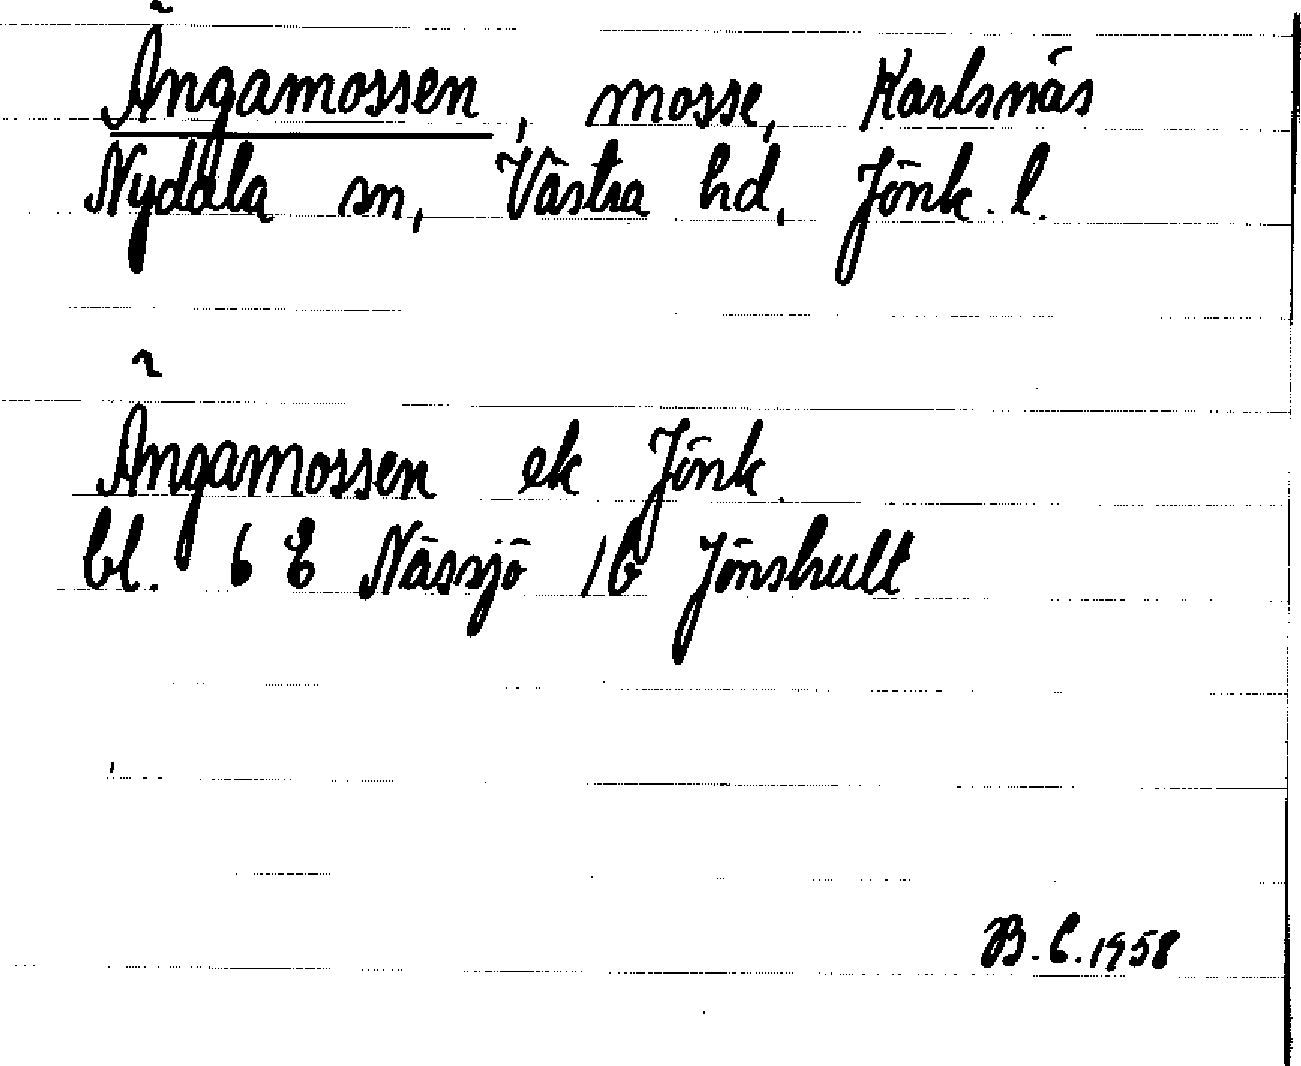 Ängamossen, mosse, Karlsnäs
Nydala sn, Västra hd, Jönk. l.
Ängamossen ek Jönk.
bl. 6 E Nässjö 1b Jönshult
B. E. 1958